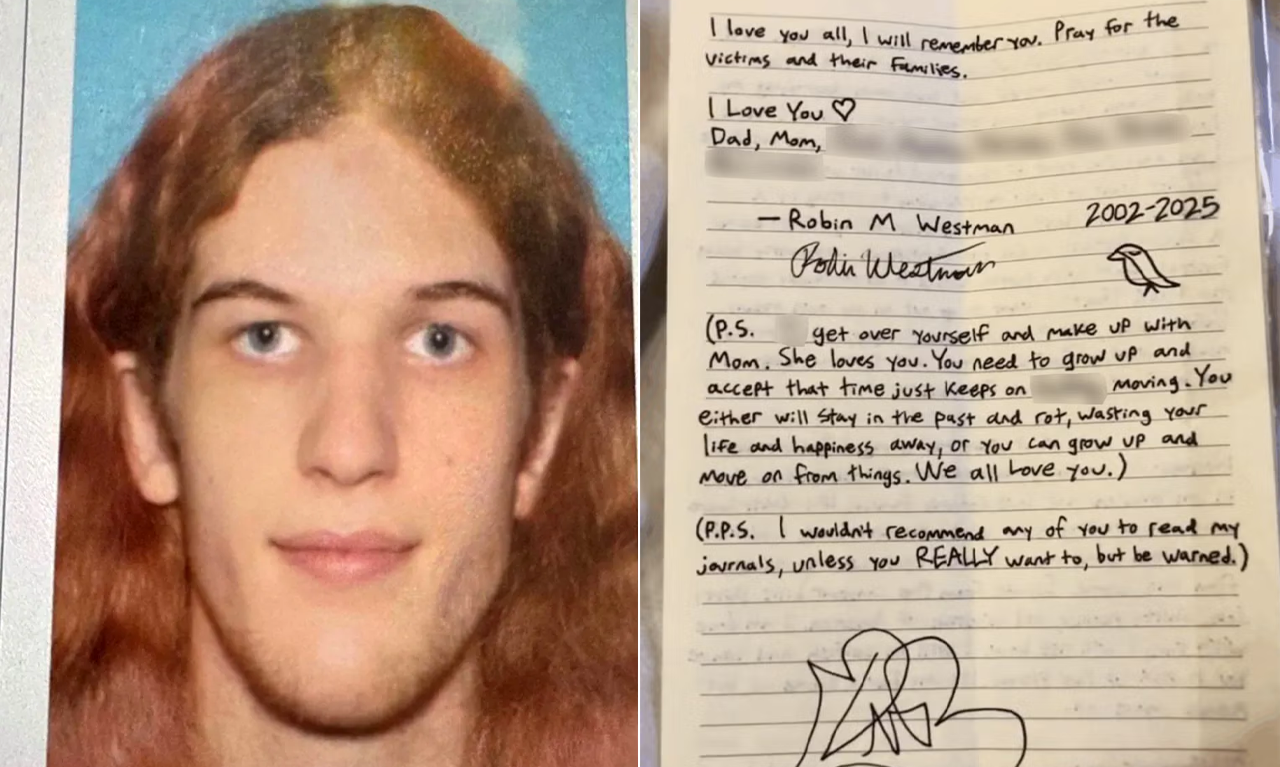 I love you all, I will remember you. Pray for the
victims and their families.
I Love You ♡
Dad, Mom,
— Robin M Westman 2002-2025
Robin Westman
(P.S. get over yourself and make up with
Mom. She loves you. You need to grow up and
accept that time just keeps on moving. You
either will stay in the past and rot, wasting your
life and happiness away, or you can grow up and
move on from things. We all love you.)
(P.P.S. I wouldn't recommend any of you to read my
journals, unless you REALLY want to, but be warned.)